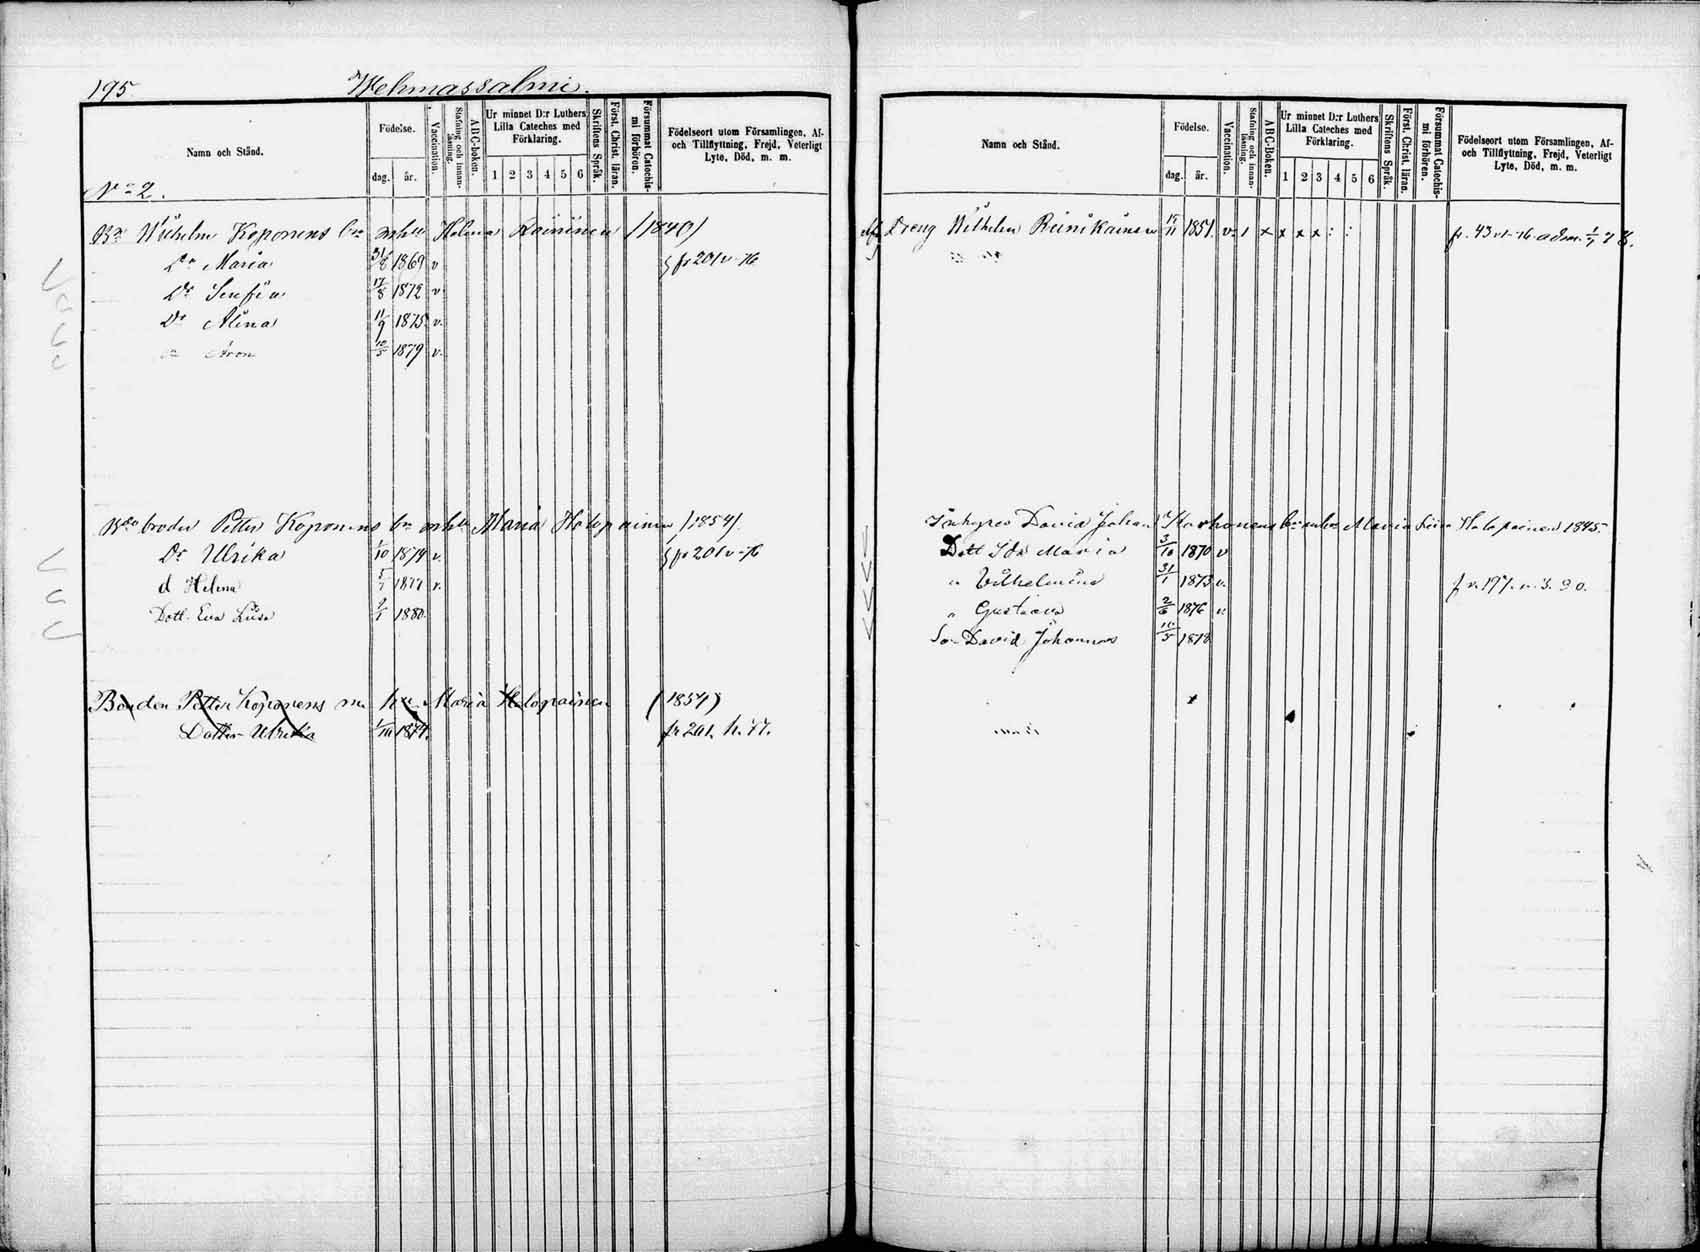 195 Wehmassalmi.
Namn och Stånd.
Födelse.
dag. år.
Vaccination.
Stafning och innanläsning.
A B C-boken.
Ur minnet D:r Luthers Lilla Cateches med Förklaring.
1 2 3 4 5 6
Skriftens Språk.
Först. Christ. läran.
Försummat Catechismi förhören.
Födelseort utom Församlingen, Af- och Tillflyttning, Frejd, Veterligt Lyte, Död, m. m.
No 2.
Wilhelm Koponens Helena (1840)
Dr Maria 31/8 1869 v fr 201 v-76
Dr Serefia 17/8 1872 v
Dr Alina 11/9 1875 v.
Aron 1879 v.
broder Petter Koponens Maria Halopainen (1854)
Dr Ulrika 1/10 1874 v. fr 201 v-76
d Helena 1877 v.
Dott. Eva Lusa 1880.
Bonden Petter Koponens Maria Halopainen (1854)
Dotter Ulrika 1/10 1874. fr 201.
Namn och Stånd.
Födelse.
dag. år.
Vaccination.
Stafning och innanläsning.
A B C-Boken.
Ur minnet D:r Luthers Lilla Cateches med Förklaring.
1 2 3 4 5 6
Skriftens Språk.
Först. Christ. läran.
Försummat Catechismi förhören.
Födelseort utom Församlingen, Af- och Tillflyttning, Frejd, Veterligt Lyte, Död, m. m.
Dreng Wilhelm Reinikainen 1851. v. x x x x fr. 43
David Johan Korhonens Maria Halopainen 1845.
Dott Ida Maria 3/10 1870 v
" Wilhelmina 31/1 1873 v.
" Gustava 2/6 1876 v.
Son David Johannes 1878